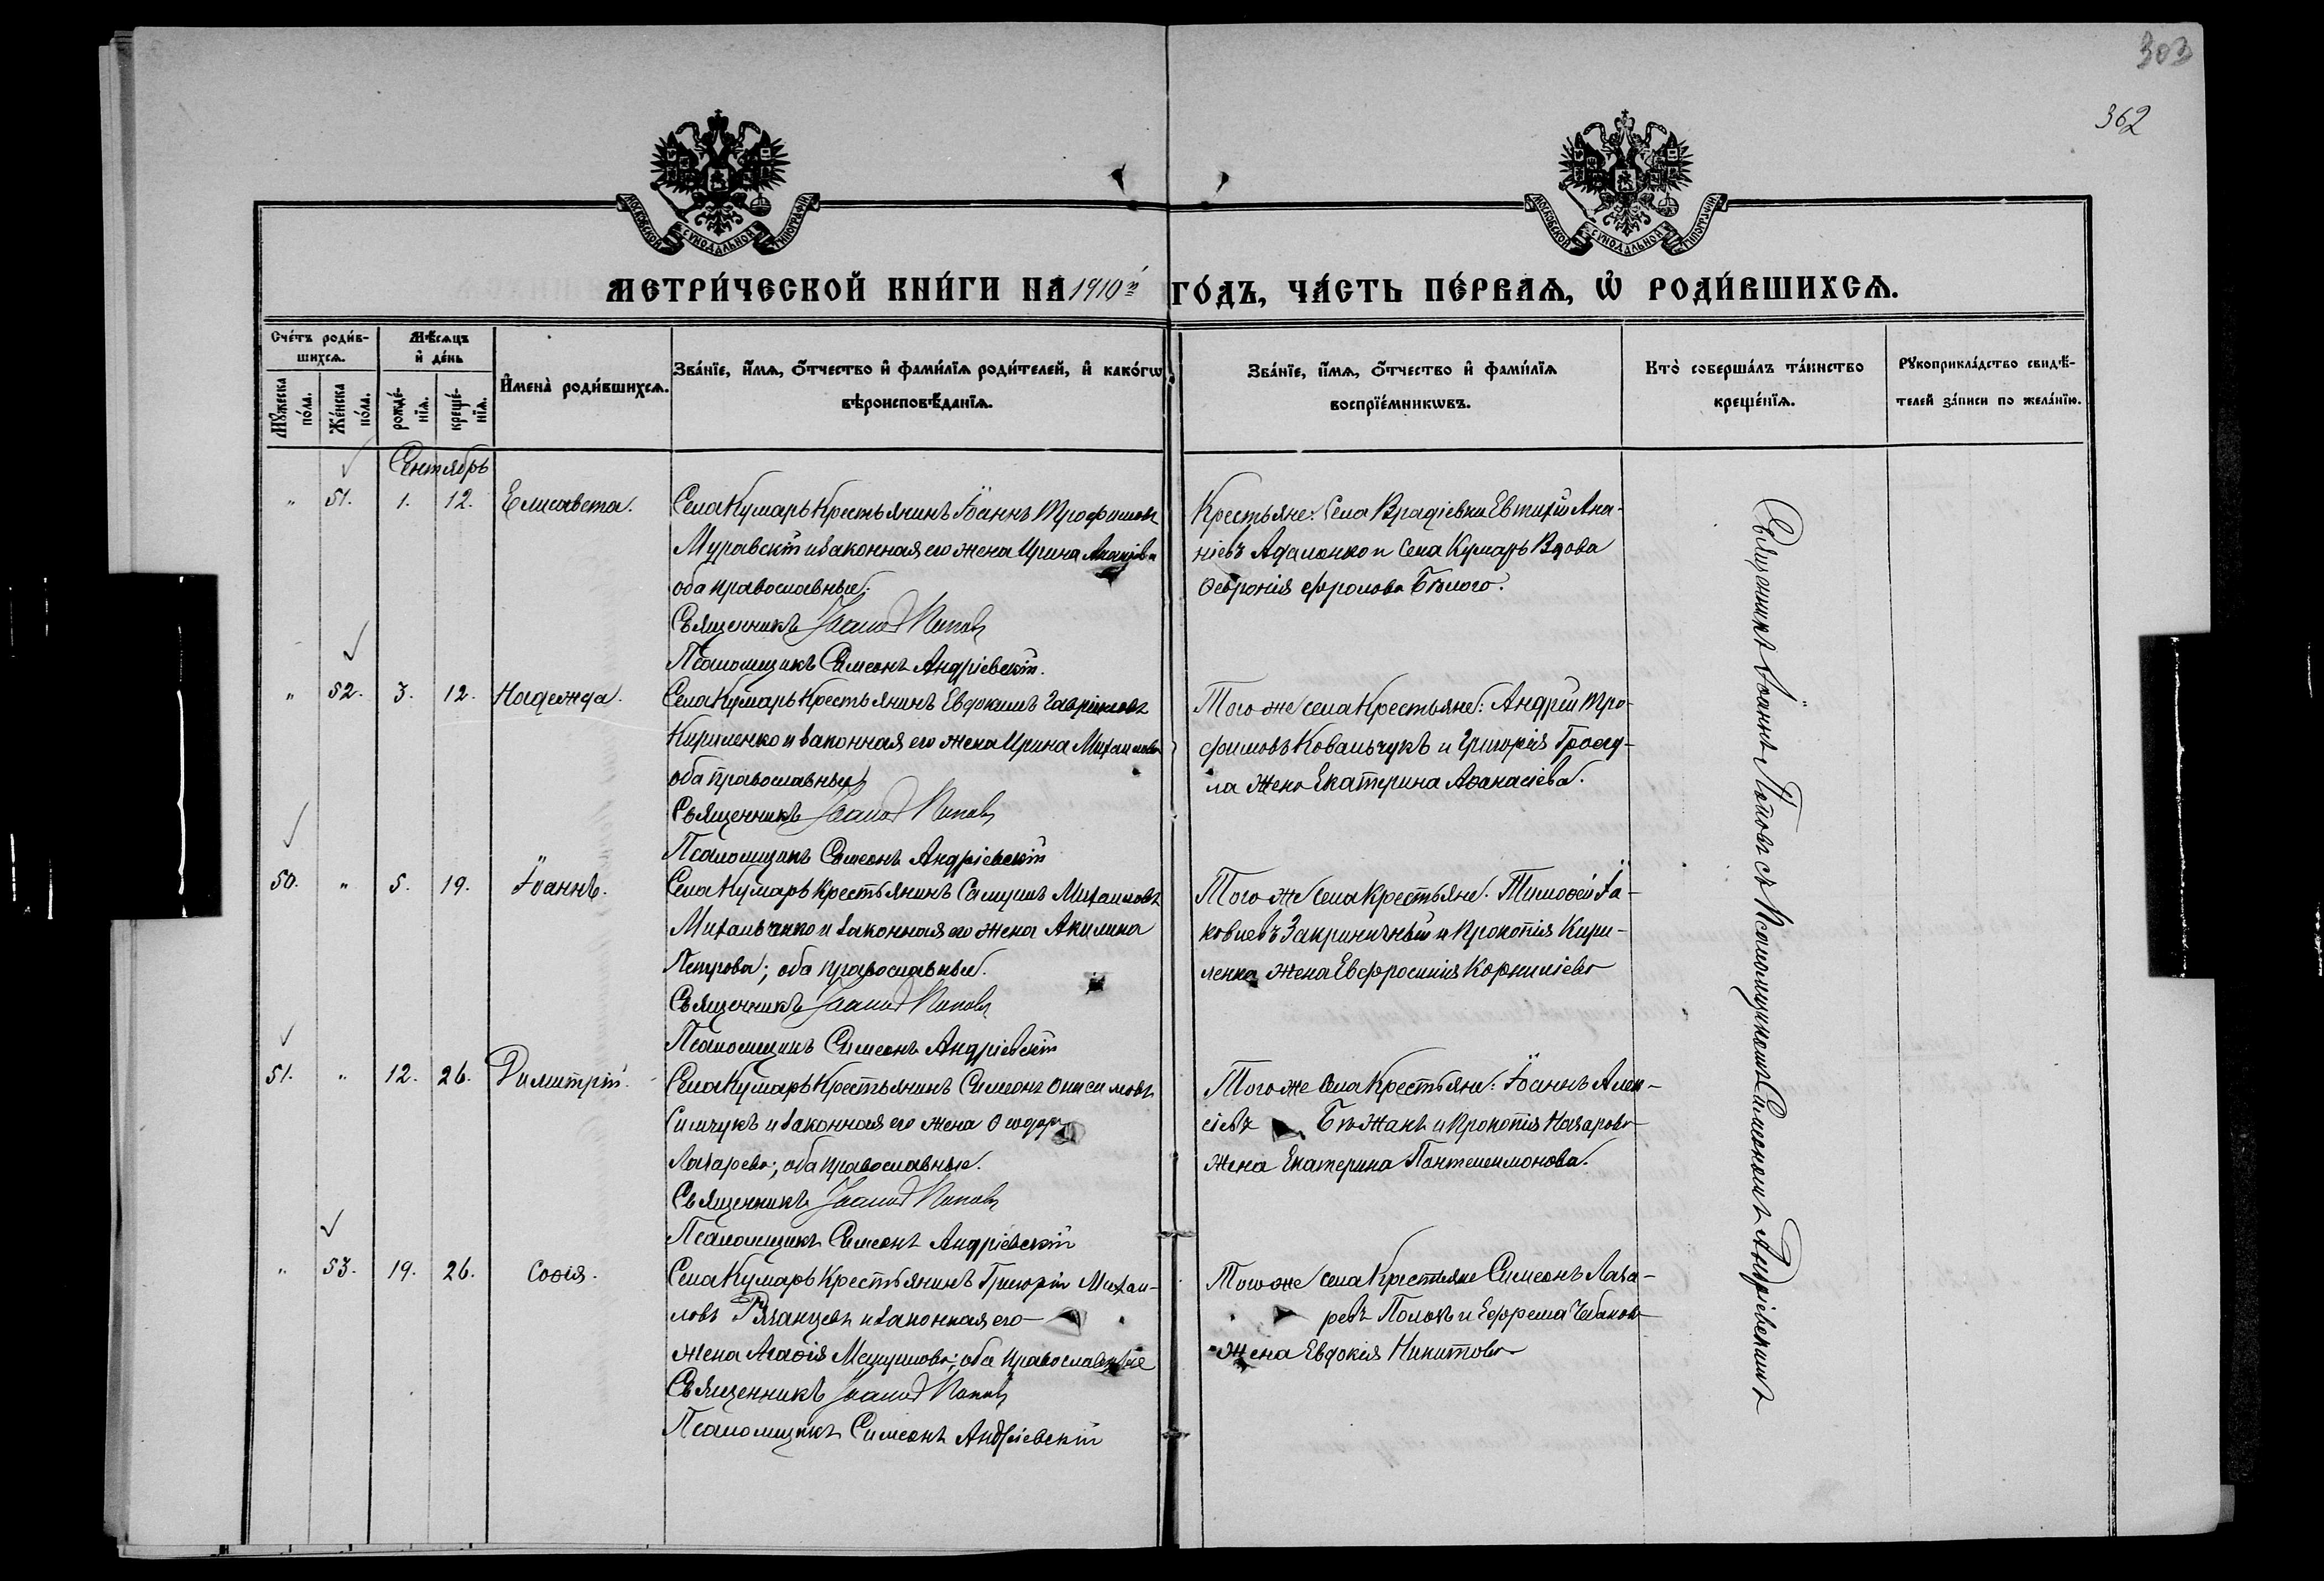 303
362
МОСКОВСКОЙ СѴНОДАЛЬНОЙ ТИПОГРАФІИ
МОСКОВСКОЙ СѴНОДАЛЬНОЙ ТИПОГРАФІИ
МЕТРИ́ЧЕСКОЙ КНИ́ГИ НА 1910й ГО́ДЪ, ЧА́СТЬ ПЕ́РВАѦ, Ѡ҆ РОДИ́ВШИХСѦ.
Сче́тъ роди́в-
шихсѧ.
Мꙋ́жеска по́ла.
Же́нска по́ла.
Мѣ́сѧцъ
и҆ де́нь
рожде́-
нїѧ.
креще́-
нїѧ.
И҆мена̀ роди́вшихсѧ.
Зва́нїе, и҆́мѧ, ѻ҆́тчество и҆ фами́лїѧ роди́телей, и҆ како́гѡ
вѣроисповѣ́данїѧ.
Зва́нїе, и҆́мѧ, ѻ҆́тчество и҆ фами́лїѧ
воспрїе́мникѡвъ.
Кто̀ соверша́лъ та́инство
креще́нїѧ.
Рꙋкоприкла́дство свидѣ́-
телей за́писи по жела́нїю.
Сентябрь
" 51. 1. 12. Елисавета.
Села Кумарь Крестьянинъ Іоаннъ Трофимовъ
Муравскій и законная его жена Ирина
оба православные.
Священникъ Іоаннъ Поповъ
Псаломщикъ Симеонъ Андріевскій.
Крестьяне: Села Врадіевки Евтихій Ана-
ніевъ и Села Кумарь Вдова
Ѳевронія Фролова Бѣлого.
" 52. 3. 12. Надежда.
Села Кумарь Крестьянинъ Евдокимъ Гавриловъ
Кириленко и законная его жена Ирина Михаилова
оба православные
Священникъ Іоаннъ Поповъ
Псаломщикъ Симеонъ Андріевскій
Того же села Крестьяне: Андрей Тро-
фимовъ Ковальчукъ и Григорія
ла жена Екатерина Аѳанасіева.
50. " 5. 19. Іоаннъ.
Села Кумарь Крестьянинъ Самуилъ Михаиловъ
Михальченко и законная его жена Акилина
Петрова; оба православные.
Священникъ Іоаннъ Поповъ
Псаломщикъ Симеонъ Андріевскій
Того же села Крестьяне. Тимоѳей Іа-
ковлевъ Закриничный и Прокопія Кири-
ленка жена Евфросинія Корниліева
51. " 12. 26. Димитрій.
Села Кумарь Крестьянинъ Симеонъ Онисимовъ
Симчукъ и законная его жена Ѳеодора
Лазарева; оба православные.
Священникъ Іоаннъ Поповъ
Псаломщикъ Симеонъ Андріевскій
Того же села Крестьяне: Іоаннъ Алек-
сіевъ Бѣжанъ и Прокопія Назарова
жена Екатерина Пантелеимонова.
" 53. 19. 26. Софія.
Села Кумарь Крестьянинъ Григорій Михаи-
ловъ Рязанцевъ и законная его
жена Агаѳія оба православные
Священникъ Іоаннъ Поповъ
Псаломщикъ Симеонъ Андріевскій
Того же села Крестьяне Симеонъ Лаза-
ревъ и Ефрема
жена Евдокія Никитова
Священникъ Іоаннъ Поповъ съ Псаломщикомъ Симеономъ Андріевскимъ